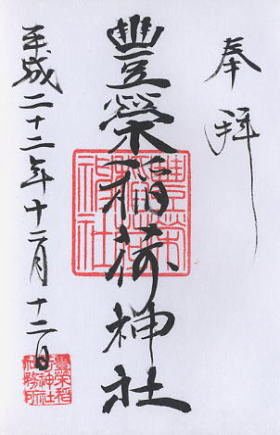 奉拝
豐榮稲荷神社
平成二十二年十二月十二日
豐榮稲荷神社
豐榮稲荷神社社務所